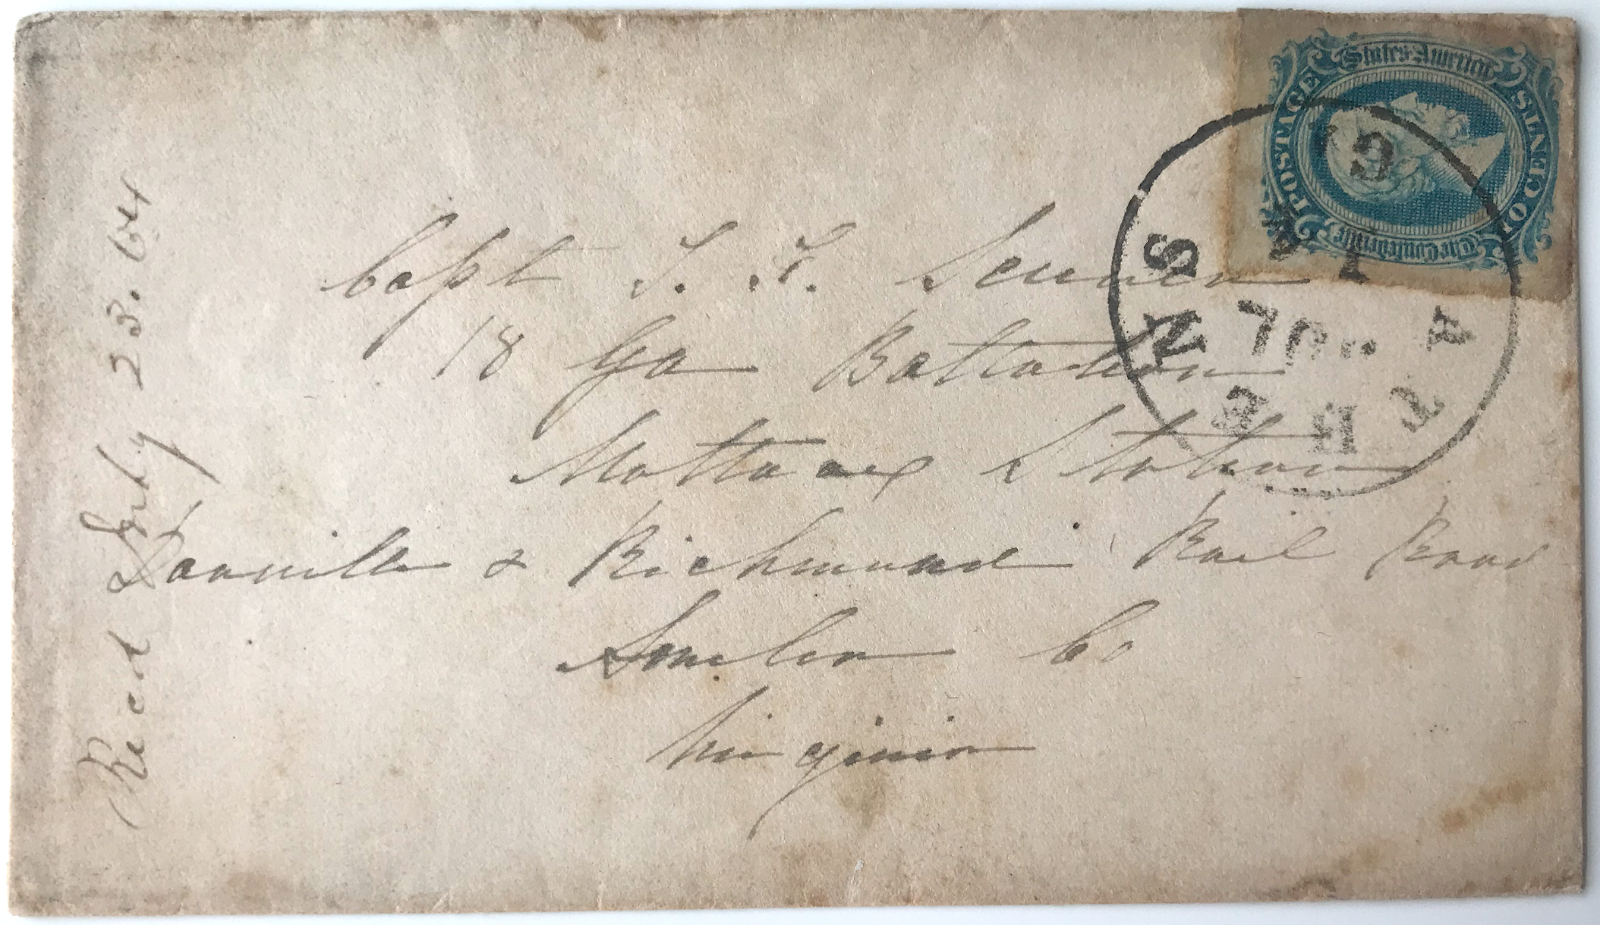 The Confederate States America
POSTAGE
10 CENTS
ATHENS GA
JUL
Capt S. F.
18 Ga Battalion
Mattoax Station
Danville & Richmond Rail Road
Amelia Co
Virginia
Recd July 23. 64